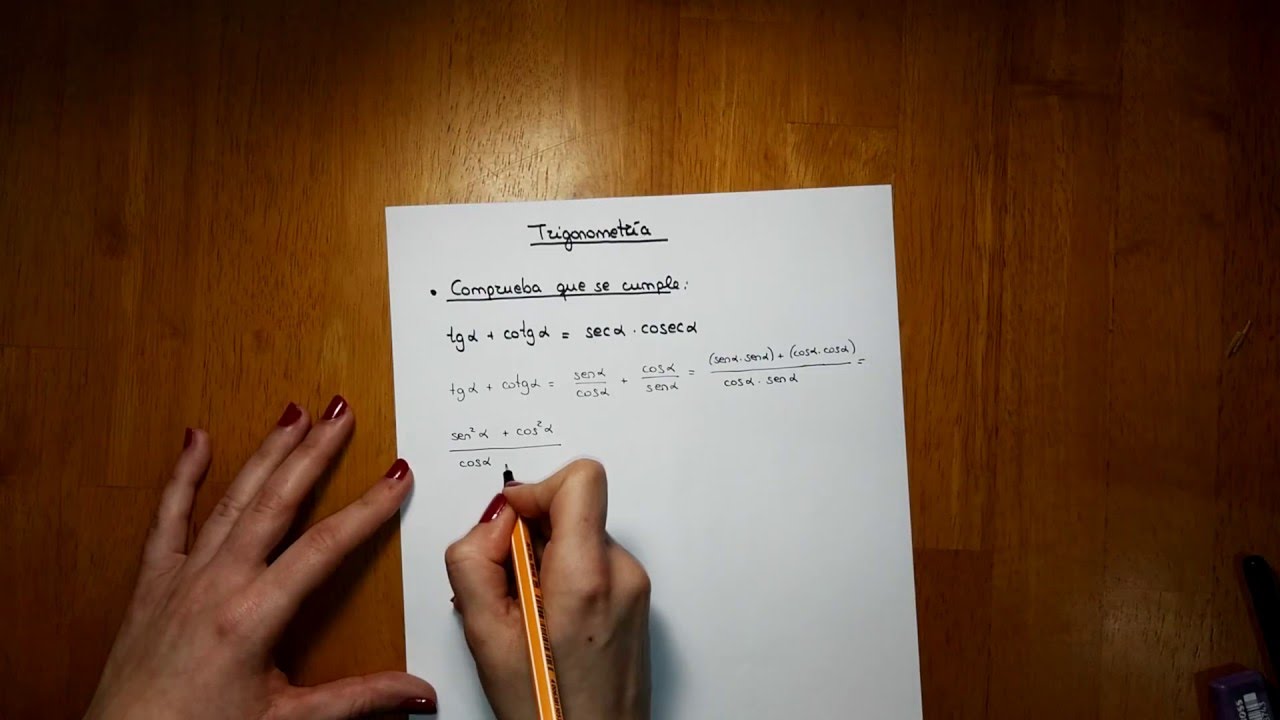 Trigonometría
• Comprueba que se cumple:
tgα + cotgα = secα . cosecα
tgα + cotgα = senα/cosα + cosα/senα = (senα.senα) + (cosα.cosα)/cosα . senα =
sen²α + cos²α/cosα .